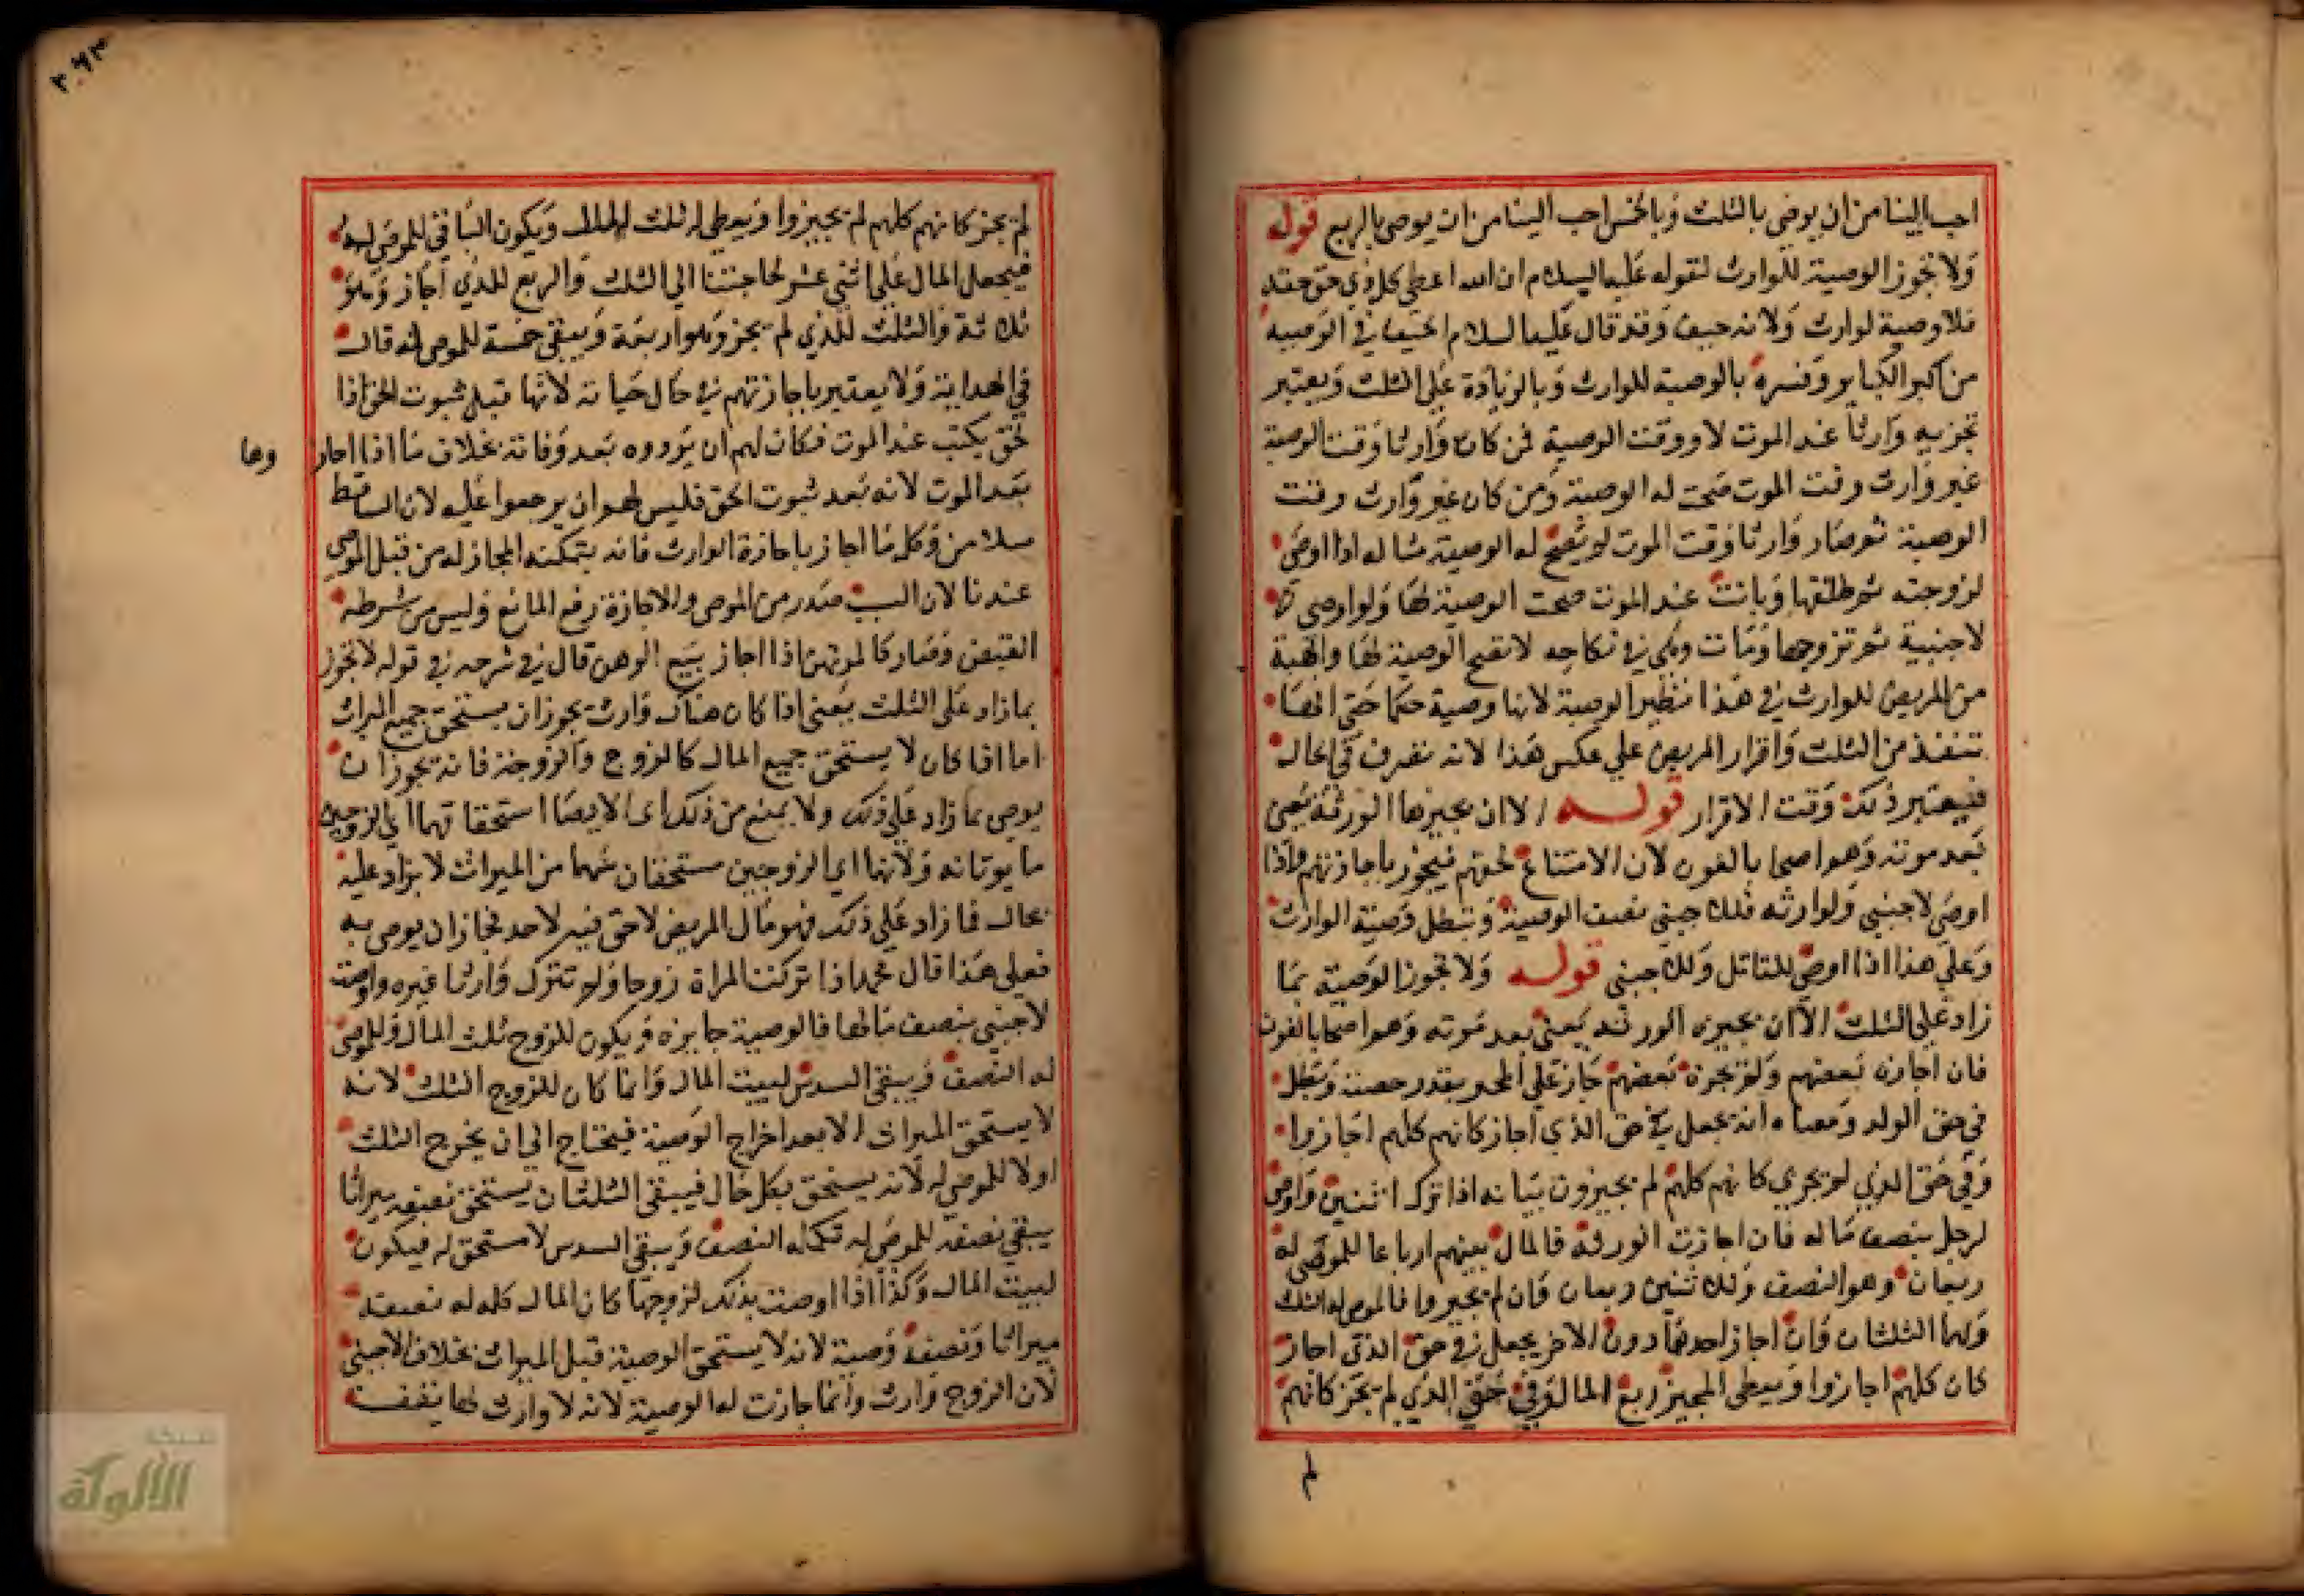 احب الينا من ان يوصي بالثلث وبالخمس احب الينا من ان يوصي بالربع قوله
ولا تجوز الوصية للوارث لقوله عليه السلام ان الله اعطي كل ذي حق حقه
فلا وصية لوارث ولانه حيف وقد قال عليه السلام الحيف في الوصية
من اكبر الكباير وفسره بالوصية للوارث وبالزيادة علي الثلث ويعتبر
وارثا عند الموت لا ووقت الوصية فمن كان وارثا وقت الوصية
غير وارث وقت الموت صحت له الوصية ومن كان غير وارث وقت
الوصية ثم صار وارثا وقت الموت لم تصح له الوصية مثاله اذا اوصي
لزوجته ثم طلقها وبانت عند الموت صحت الوصية لها ولو اوصي
لاجنبية ثم تزوجها ومات وهي في نكاحه لا تصح الوصية لها والهبة
من المريض للوارث في هذا نظير الوصية لانها وصية حكما حتي
تنفذ من الثلث واقرار المريض علي عكس هذا لانه تصرف في الحال
فيعتبر ذلك وقت الاقرار قوله الا ان يجيزها الورثة يعني
بعد موته وهم اصحا بالغون لان الامتناع لحقهم فيجوز باجازتهم واذا
اوصي لاجنبي ولوارثه فللاجنبي نصف الوصية وتبطل وصية الوارث
وعلي هذا اذا اوصي للقاتل وللاجنبي قوله ولا تجوز الوصية بما
زاد علي الثلث الا ان يجيزه الورثة يعني بعد موته وهم اصحا بالغون
فان اجازه بعضهم ولم يجزه بعضهم جاز علي المجيز بقدر حصته وبطل
في حق الولد ومعناه انه يجعل في حق الذي اجاز كانهم كلهم اجازوا
وفي حق الذي لم يجزي كانهم كلهم لم يجيزون بيانه اذا ترك اثنين واوصي
لرجل بنصف ماله فان اجازت الورثة فالمال بينهم ارباعا للموصي له
ربعان وهو النصف وللاثنين ربعان فان لم يجيزوا فالموصي له الثلث
ولهما الثلثان فان اجاز احدهما دون الاخر يجعل في حق الذي اجاز
كان كلهم اجازوا ويعطي المجيز ربع المال وفي حق الذي لم يجز كانهم
لم
٢٦٣
لم يجز كانهم كلهم لم يجيزوا ويعطي له ثلث المال ويكون الباقي للموصي له
فيجعل المال علي اثني عشر لحاجتنا الي الثلث والربع للذي اجاز وهو
ثلاثة والثلث للذي لم يجز وهو اربعة ويبقي خمسة للموصي له قال
في الهداية ولا يعتبر باجازتهم في حال حياته لانها قبل ثبوت الحق اذا
لحق يكتب عند الموت فكان لهم ان يردوه بعد وفاته بخلاف ما اذا اجاز وها
بعد الموت لانه بعد ثبوت الحق فليس لهم ان يرجعوا عليه لان الساقط
متلاش وكل ما اجاز باجازة الوارث فانه يتمكنه المجاز له من قبل الموصي
عندنا لان السبب صدر من الموصي والاجازة رفع المانع وليس من شرطه
القبض وصار كالمرتهن اذا اجاز بيع الرهن قال في شرحه في قوله لا تجوز
بما زاد علي الثلث يعني اذا كان هناك وارث يجوز ان يستحق جميع الميراث
اما اذا كان لا يستحق جميع المال كالزوج والزوجة فانه يجوز ان
يوصي بما زاد علي ذلك ولا يمنع من ذلك اي الايصا استحقاقهما اي الزوجين
ما يوتانه ولانهما اي الزوجين مستحقان سهما من الميراث لا يزاد عليه
بحال فما زاد علي ذلك فهو مال المريض لا حق فيه لاحد فجاز ان يوصي به
فعلي هذا قال محمد اذا تركت المراة زوجا ولم تترك وارثا غيره واوصت
لاجنبي بنصف مالها فالوصية جايزه ويكون للزوج ثلث المال وللموصي
له النصف ويبقي السدس لبيت المال وانما كان للزوج الثلث لانه
لا يستحق الميراث الا بعد اخراج الوصية فيحتاج الي ان يخرج الثلث
اولا للموصي له لانه يستحق بكل حال فيبقي الثلثان يستحق نصفه ميراثا
يبقي نصفه للموصي له تكمله النصف ويبقي السدس لا مستحق له فيكون
لبيت المال وكذا اذا اوصت بذلك لزوجها كان المال كله له نصفه
ميراثا ونصفه وصية لانه لا يستحق الوصية قبل الميراث بخلاف الاجنبي
لان الزوج وارث وانما جازت له الوصية لانه لا وارث لها
شبكة
الألوكة